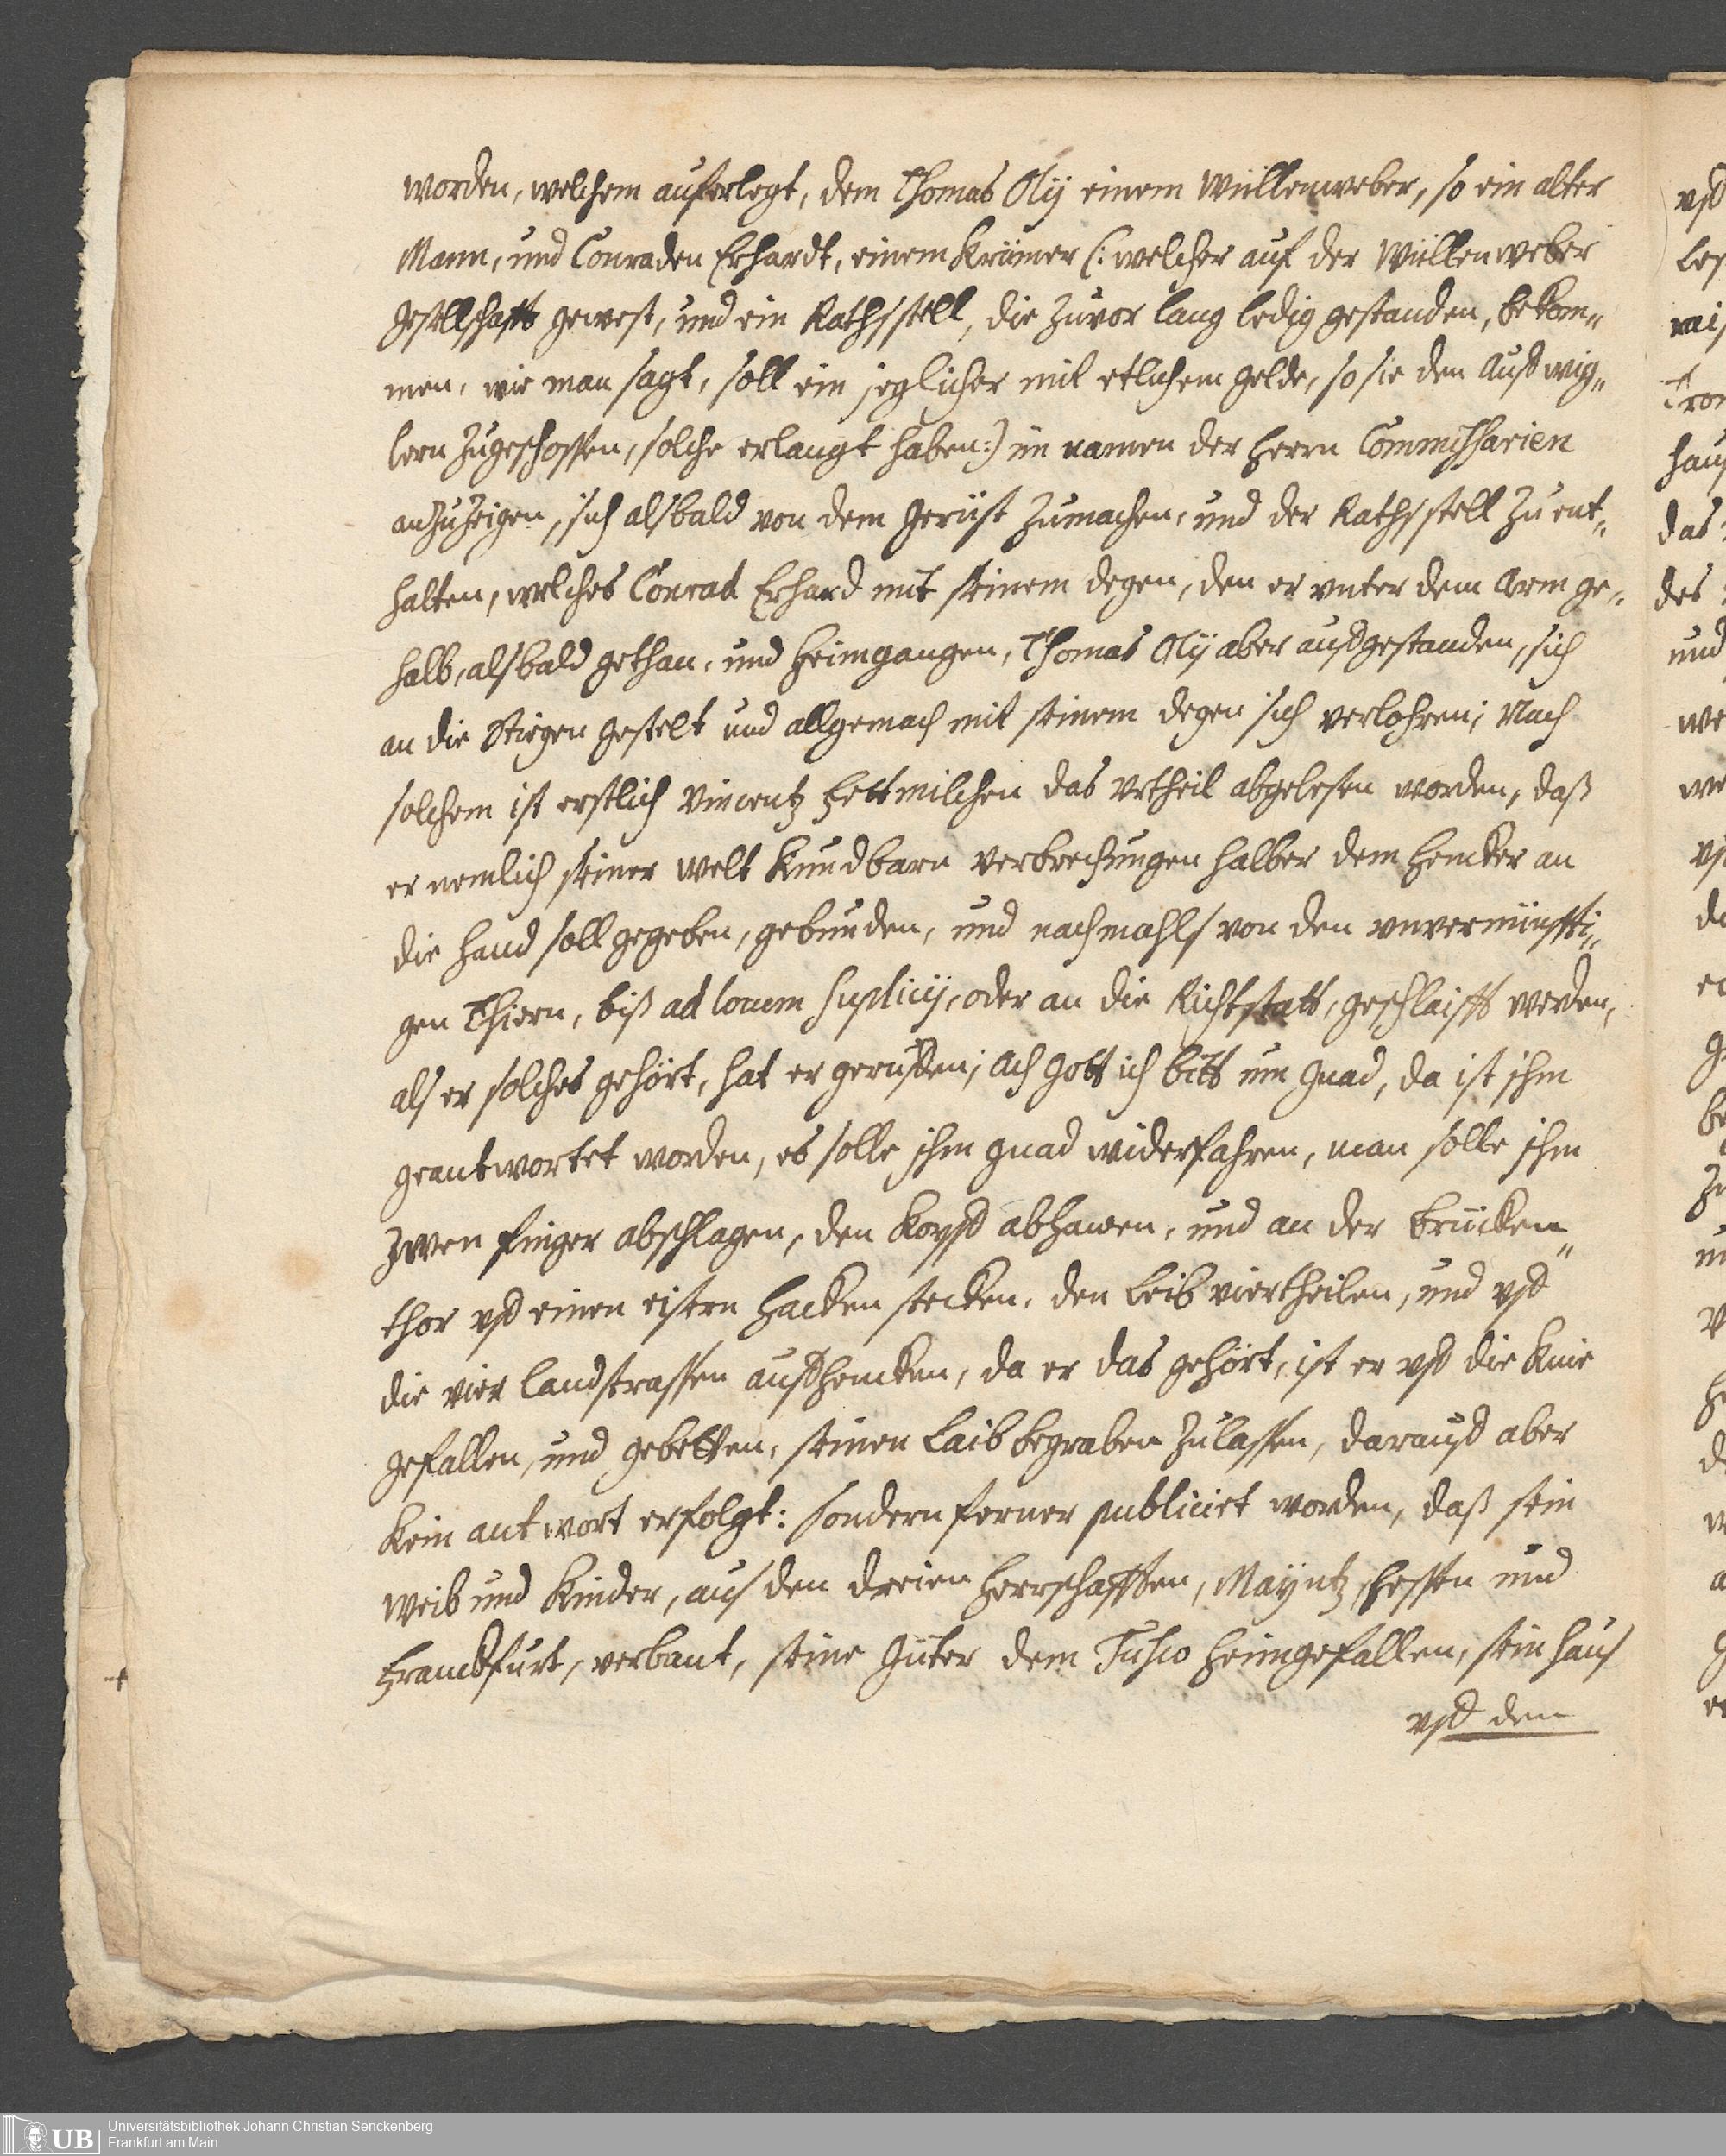 worden, welchem auferlegt, dem Thomas Oly einem Wüllenweber, so ein alter
Mann, und Conraden Erhardt, einem Krämer (: welcher auf der Wüllenweber
gesellschafft gewest, und ein Rathsstell, die zuvor lang ledig gestanden, bekom„
men, wie man sagt, soll ein jeglicher mit etlichem gelde, so sie den Auffwig„
lern zugeschossen, solche erlangt haben:) im namen der Herrn Commissarien
anzuzeigen, sich alsbald von dem gerüst zumachen, und der Rathsstell zu ent„
halten, welches Conrad Erhard mit seinem degen, den er vnter dem Arm ge„
habt, alsbald gethan, und heimgangen, Thomas Oly aber auffgestanden, sich
an die Stiegen gestelt und allgemach mit seinem degen sich verlohren; Nach
solchem ist erstlich Vincentz Fettmilchen das vrtheil abgelesen worden, daß
er nemlich seiner welt kundbarn verbrechungen halber dem Hencker an
die hand soll gegeben, gebunden, und nachmahls von den vnvernünffti„
gen Thiern, biß ad locum suplicij, oder an die Richtstatt, geschlaifft werden,
als er solches gehört, hat er geruffen; Ach Gott ich bitt um gnad, da ist jhm
geantwortet worden, es solle jhm gnad widerfahren, man solle jhm
zwen finger abschlagen, den kopff abhawen, und an der brücken„
thor vff einen eisern hacken stecken, den Leib viertheilen, und vff
die vier landstrassen auffhencken, da er das gehört, ist er vff die knie
gefallen, und gebetten, seinen Laib begraben zulassen, darauff aber
kein antwort erfolgt: sondern ferner publiciet worden, daß sein
weib und kinder, aus den dreien herrschafften, Mayntz, Hessen und
Franckfurt, verbant, seine güter dem Fisco heimgefallen, sein haus
vff dem
Universitätsbibliothek Johann Christian Senckenberg
Frankfurt am Main
UB